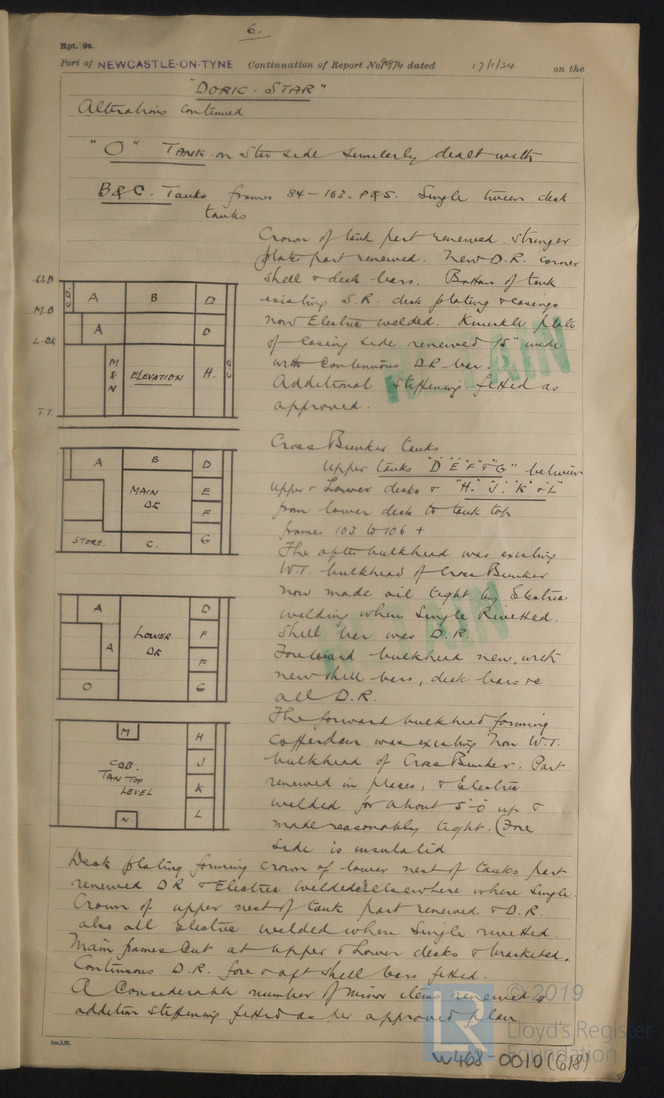 6.
Rpt. 9a.
Port of NEWCASTLE-ON-TYNE Continuation of Report No. 90974 dated 17/1/24 on the
"DORIC-STAR"
Alterations continued
"O" TANK on Star side similarly dealt with
B&C. Tanks frames 84-103. P&S. Single tween deck
tanks
Crown of tank part renewed. Stringer
plate part renewed. New D.R. corner
shell & deck bars. Bottom of tank
existing S.R. deck plating & casings
now Electric welded. Knuckle plate
of casing side renewed 15" wide
with continuous DR bar.
Additional stiffening fitted as
approved.
U.D
M.D
L.DK
T.T.
A B D
A D
M&N ELEVATION H.
RETAIN
Cross Bunker tanks
Upper tanks "D" "E" "F" & "G" between
upper & Lower decks & "H" "J" "K" & "L"
from lower deck to tank top
frames 103 to 106 +
The after bulkhead was existing
W.T. bulkhead of Cross Bunker
now made oil tight by Electric
welding when Single Rivetted.
Shell bar was D.R.
Foreward bulkhead new, with
new shell bars, deck bars &c
all D.R.
A B D
MAIN DK
E
F
STORE. C. G
A D
LOWER DK
F
A F
O G
RETAIN
The forward bulkhead forming
cofferdam was existing Non W.T.
bulkhead of Cross Bunker. Part
renewed in places, & Electric
welded for about 5'-0" up &
made reasonably tight. (Fore
side is insulated
M H
J
TAN TOP
LEVEL
K
N. L
Deck plating forming crown of lower nest of tanks part
renewed DR & Electric welded elsewhere where single.
Crown of upper nest of tank part renewed & D.R.
also all Electric welded when Single rivetted.
Main frames cut at upper & Lower decks & bracketed.
Continuous D.R. fore & aft shell bars fitted.
A Considerable number of minor items renewed &
addition stiffening fitted as per approved plan
© 2019
LR
Lloyd's Register
Foundation
W468-0010 (6/8)